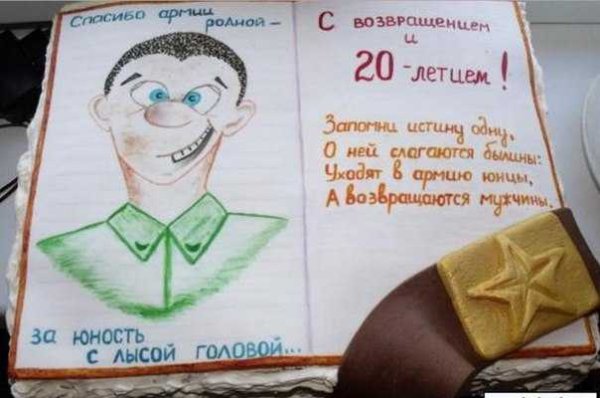 Спасибо армии
родной –
за юность
с лысой головой...
С возвращением
и
20-летием!
Запомни истину одну,
О ней слагаются былины:
Уходят в армию юнцы,
А возвращаются мужчины.